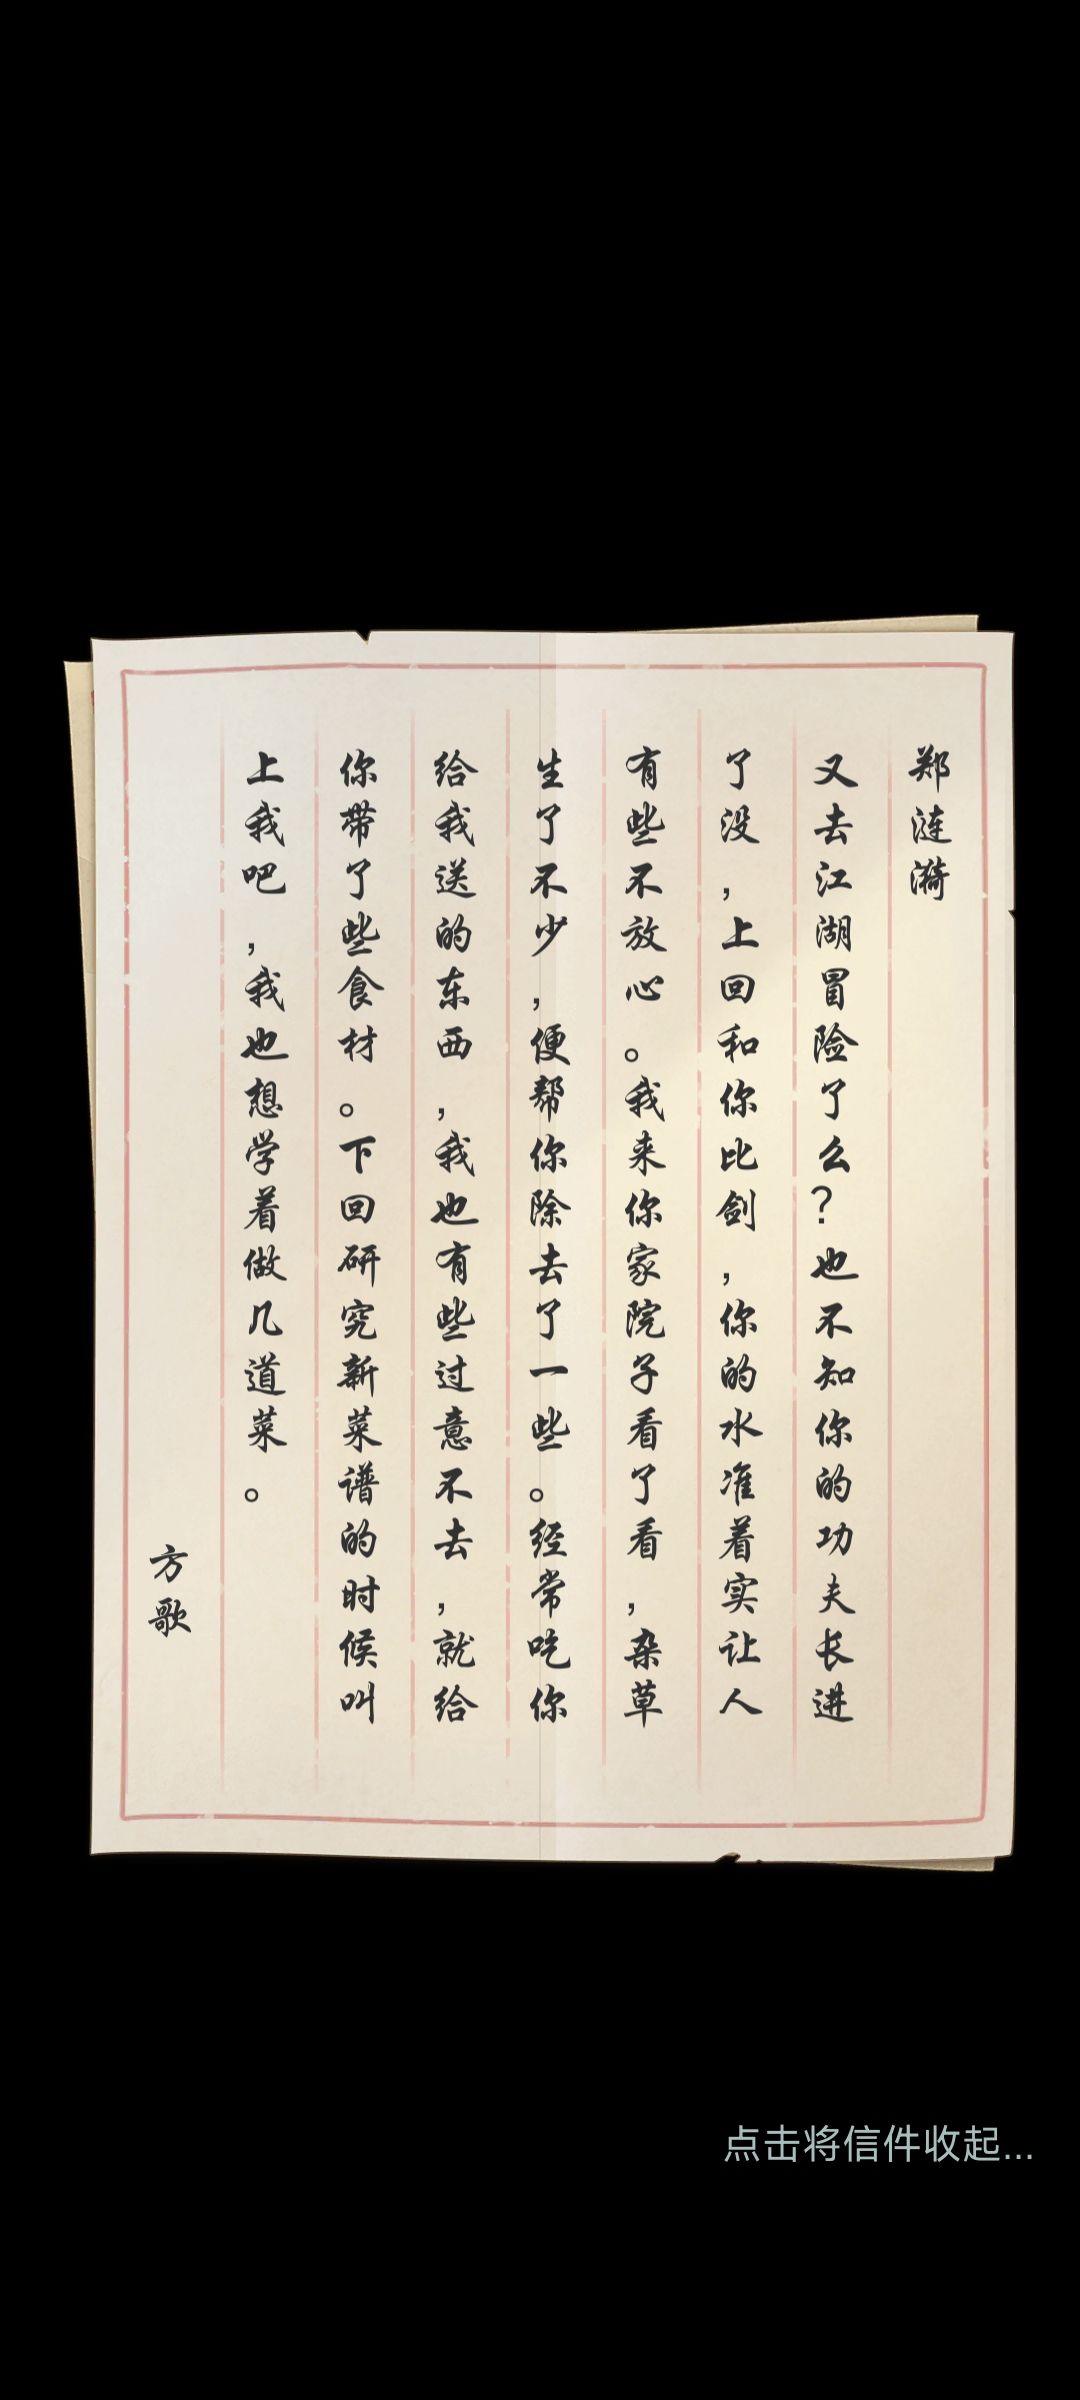 郑涟漪
又去江湖冒险了么？也不知你的功夫长进
了没，上回和你比剑，你的水准着实让人
有些不放心。我来你家院子看了看，杂草
生了不少，便帮你除去了一些。经常吃你
给我送的东西，我也有些过意不去，就给
你带了些食材。下回研究新菜谱的时候叫
上我吧，我也想学着做几道菜。
方歌
点击将信件收起...